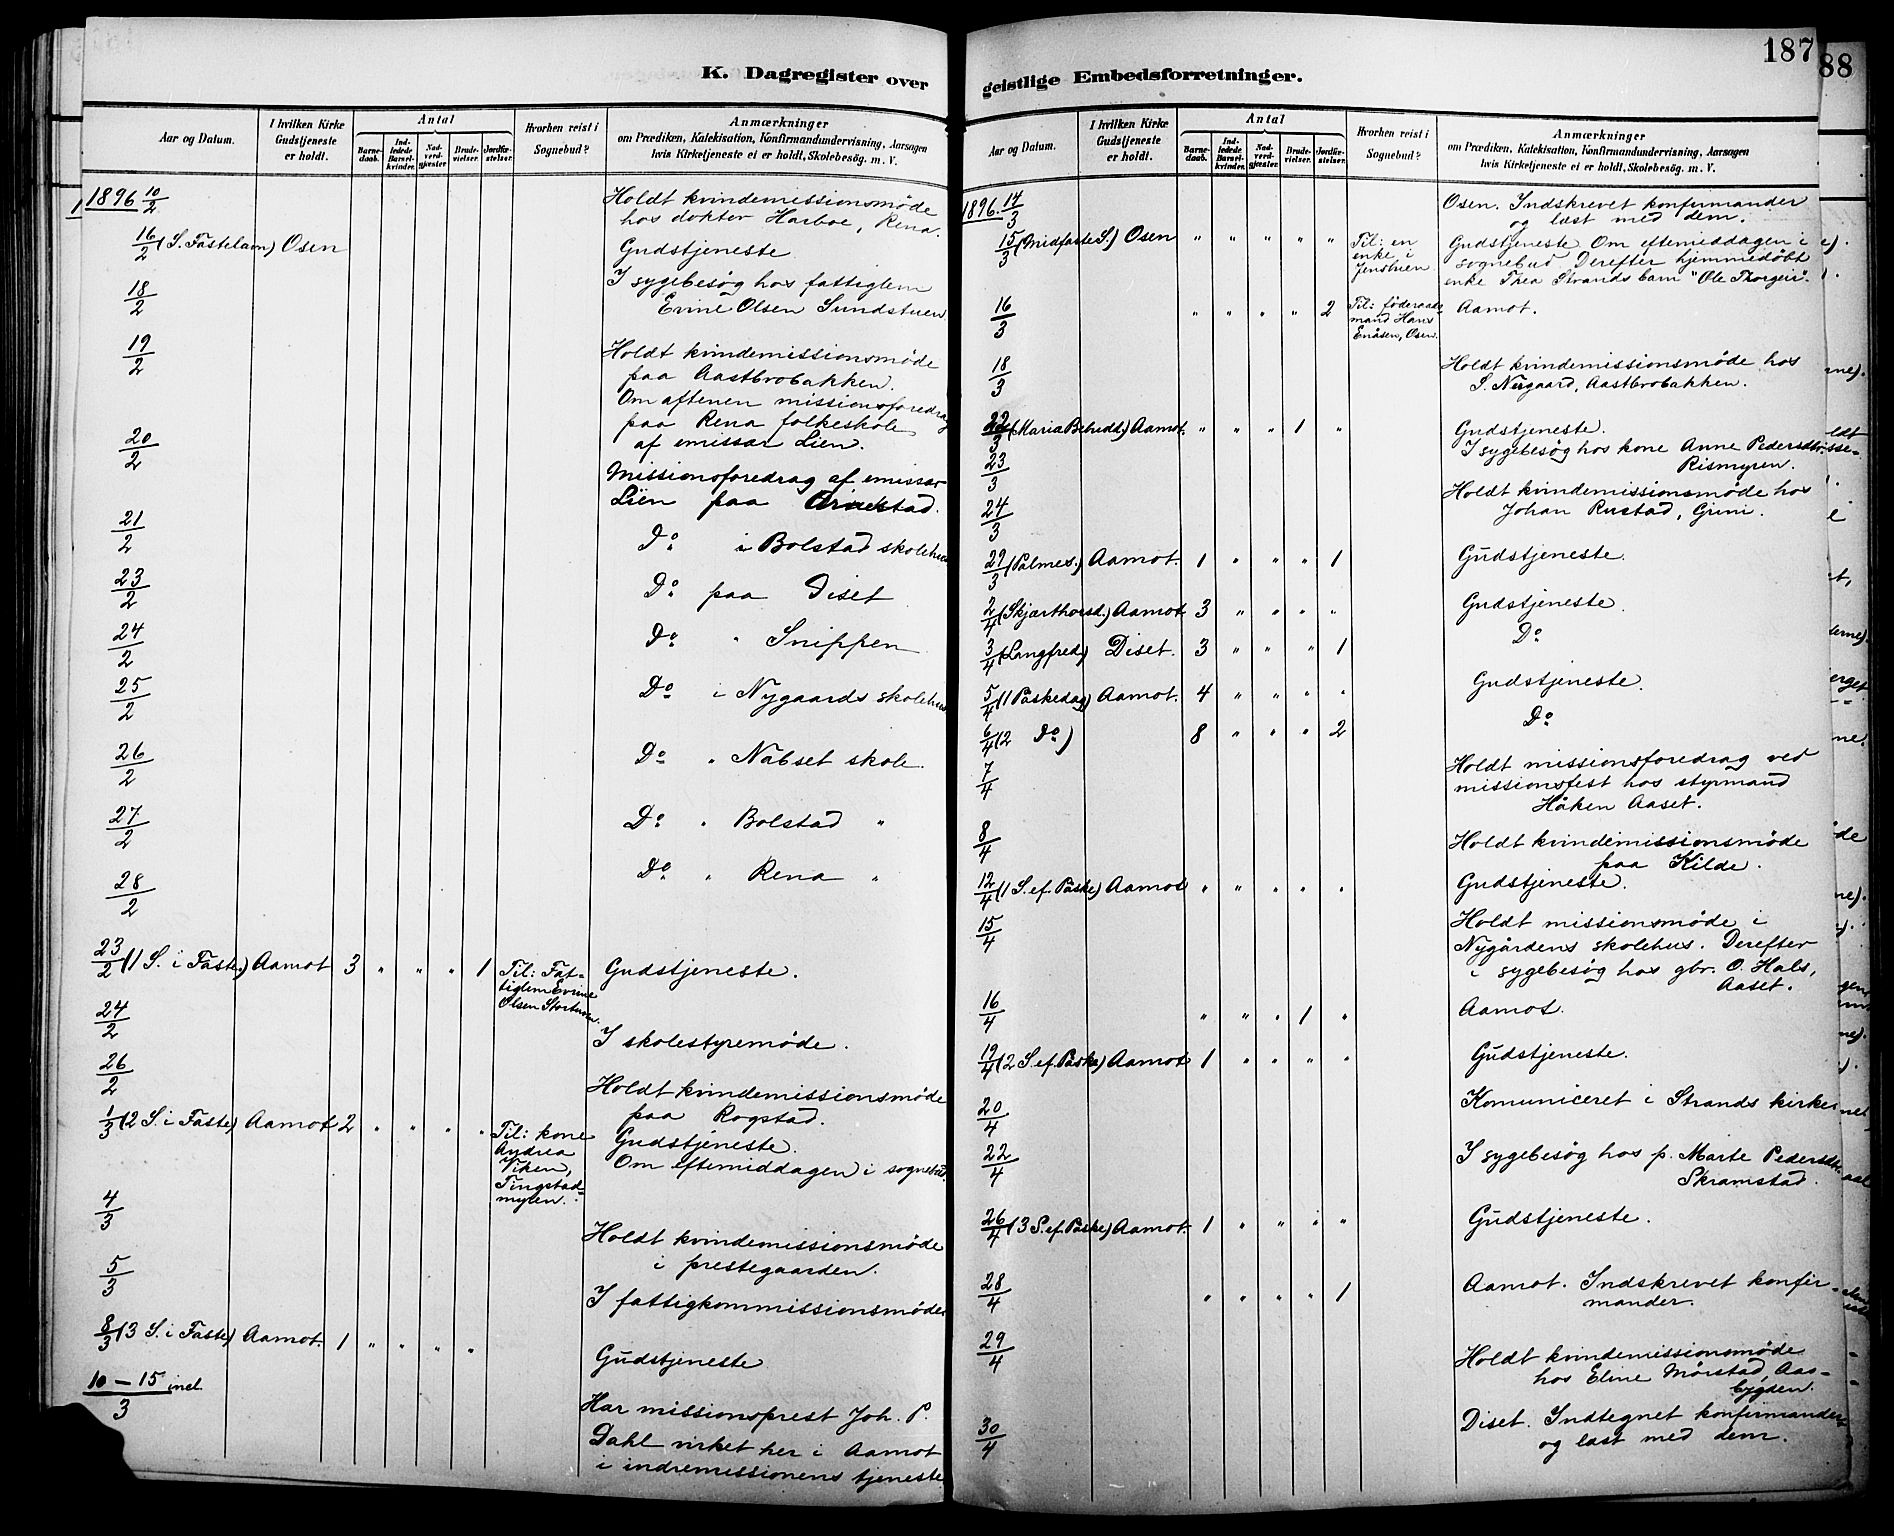 K. Dagregister over
Aar og Datum.
I hvilken Kirke Gudstjeneste er holdt.
Antal
Barne-daab.
Ind-ledede Barsel-kvinder.
Nad-verd-gjester
Brude-vielser.
Jordfæ-stelser.
Hvorhen reist i Sognebud?
Anmærkninger
om Prædiken, Katekisation, Konfirmandundervisning, Aarsagen
hvis Kirketjeneste ei er holdt, Skolebesøg. m. V.
1896 10/2 Holdt kvindemissionsmøde
hos doktor Harboe, Rena.
16/2 (S. Fastelavn) Osen Gudstjeneste
18/2 I sygebesøg hos fattiglem
Evine Olsen Sundstuen
19/2 Holdt kvindemissionsmøde
paa Aastbrobakken.
Om aftenen missionsforedrag
paa Rena folkeskole
af emissær Lien.
20/2 Missionsforedrag af emissær
Lien paa Arnestad.
21/2 Do i Bolstad skolehus
23/2 Do paa Diset
24/2 Do " Snippen
25/2 Do i Nygaards skolehus
26/2 Do " Nabset skole.
27/2 Do " Bolstad "
28/2 Do " Rena "
23/2 (1 S. i Faste.) Aamot 3 " " " 1 Til: Fat- Gudstjeneste.
tiglem Evine
Olsen Stortuen.
24/2 I skolestyremøde.
26/2 Holdt kvindemissionsmøde
paa Rogstad.
1/3 (2 S. i Faste) Aamot 2 " " " " Til: kone Gudstjeneste.
Andrea Om eftermiddagen i sognebud.
Viken,
Tingstad-
myren.
4/3 Holdt kvindemissionsmøde
i prestegaarden.
5/3 I fattigkommissionsmøde
8/3 (3 S. i Faste) Aamot. 1 " " " " Gudstjeneste
10-15 incl./3 Har missionsprest Joh. P.
Dahl virket her i Aamot
i indremissionens tjeneste
187
88
geistlige Embedsforretninger.
Aar og Datum.
I hvilken Kirke Gudstjeneste er holdt.
Antal
Barne-daab.
Ind-ledede Barsel-kvinder.
Nad-verd-gjester.
Brude-vielser.
Jordfæ-stelser.
Hvorhen reist i Sognebud?
Anmærkninger
om Prædiken, Katekisation, Konfirmandundervisning, Aarsagen
hvis Kirketjeneste ei er holdt, Skolebesøg. m. V.
1896. 14/3 Osen. Indskrevet konfirmander
og læst med dem.
15/3 (Midfaste S.) Osen " " " " " Til: en Gudstjeneste. Om eftemiddagen i
enke i sognebud Derefter hjemmedøbt
Jenshuen enke Thea Strands barn "Ole Thorgeir".
16/3 " " " " 2 Til: føderaads- Aamot.
mand Hans
Enåsen, Osen.
18/3 Holdt kvindemissionsmøde hos
S. Nygaard, Aastbrobakken.
22/3 (Maria Bebudd.) Aamot. " " " 1 " Gudstjeneste.
23/3 I sygebesøg hos kone Anne Pedersdtr.
Rismyren.
24/3 Holdt kvindemissionsmøde hos
Johan Rustad, Grini.
29/3 (Palmes.) Aamot. 1 " " " 1 Gudstjeneste.
2/4 (Skjærthorsd.) Aamot 3 " " " " Gudstjeneste.
3/4 (Langfred.) Diset. 3 " " " 1 Do
5/4 (1 Påskedag) Aamot. 4 " " " " Gudstjeneste.
6/4 (2 Do) 8 " " " 2 Do
7/4 Holdt missionsforedrag ved
missionsfest hos styrmand
Håken Aaset.
8/4 Holdt kvindemissionsmøde
paa Kilde.
12/4 (1 S. ef. Påske) Aamot " " " " " Gudstjeneste.
15/4 Holdt missionsmøde i
Nygårdens skolehus. Derefter
i sygebesøg hos gbr. O. Hals,
Aaset.
16/4 " " " 1 " Aamot.
19/4 (2 S. ef. Påske) Aamot 1 " " " " Gudstjeneste.
20/4 Komuniceret i Strands kirke
22/4 I sygebesøg hos p. Marte Pedersdtr.
Skramstad.
26/4 (3 S. ef. Påske) Aamot. 1 " " " " Gudstjeneste.
28/4 " " " " 1 Aamot. Indskrevet konfir-
mander.
29/4 Holdt kvindemissionsmøde
hos Eline Mørstad, Aas-
bygden.
30/4 Diset. Indtegnet konfirmander
og læst med dem.